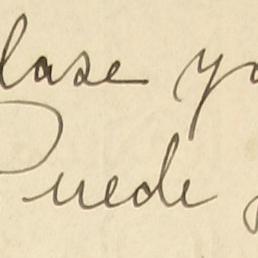 clase yo
Puede